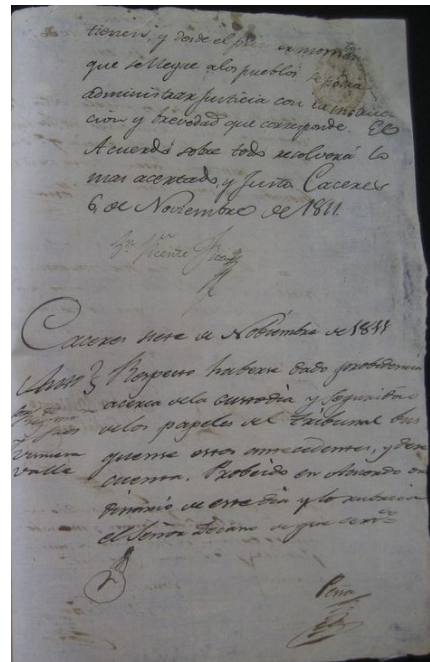 tienen, y desde el prim ex momto
que se llegue a los pueblos se podrá
administrar justicia con la
cion y brevedad que corresponde. El
Acuerdo sobre todo resolverá lo
mas acertado, y Justo. Caceres
6 de Noviembre de 1811.
Vicente
Caceres siete de Nobiembre de 1811
Respecto haberse dado probidencia
acerca de la custodia y seguridad
de los papeles del tribunal bus
quense estos antecedentes, y dese
cuenta. Probeido en Acuerdo or
dinario de este dia y lo rubrica
el Señor Decano de que
Valle
Peña